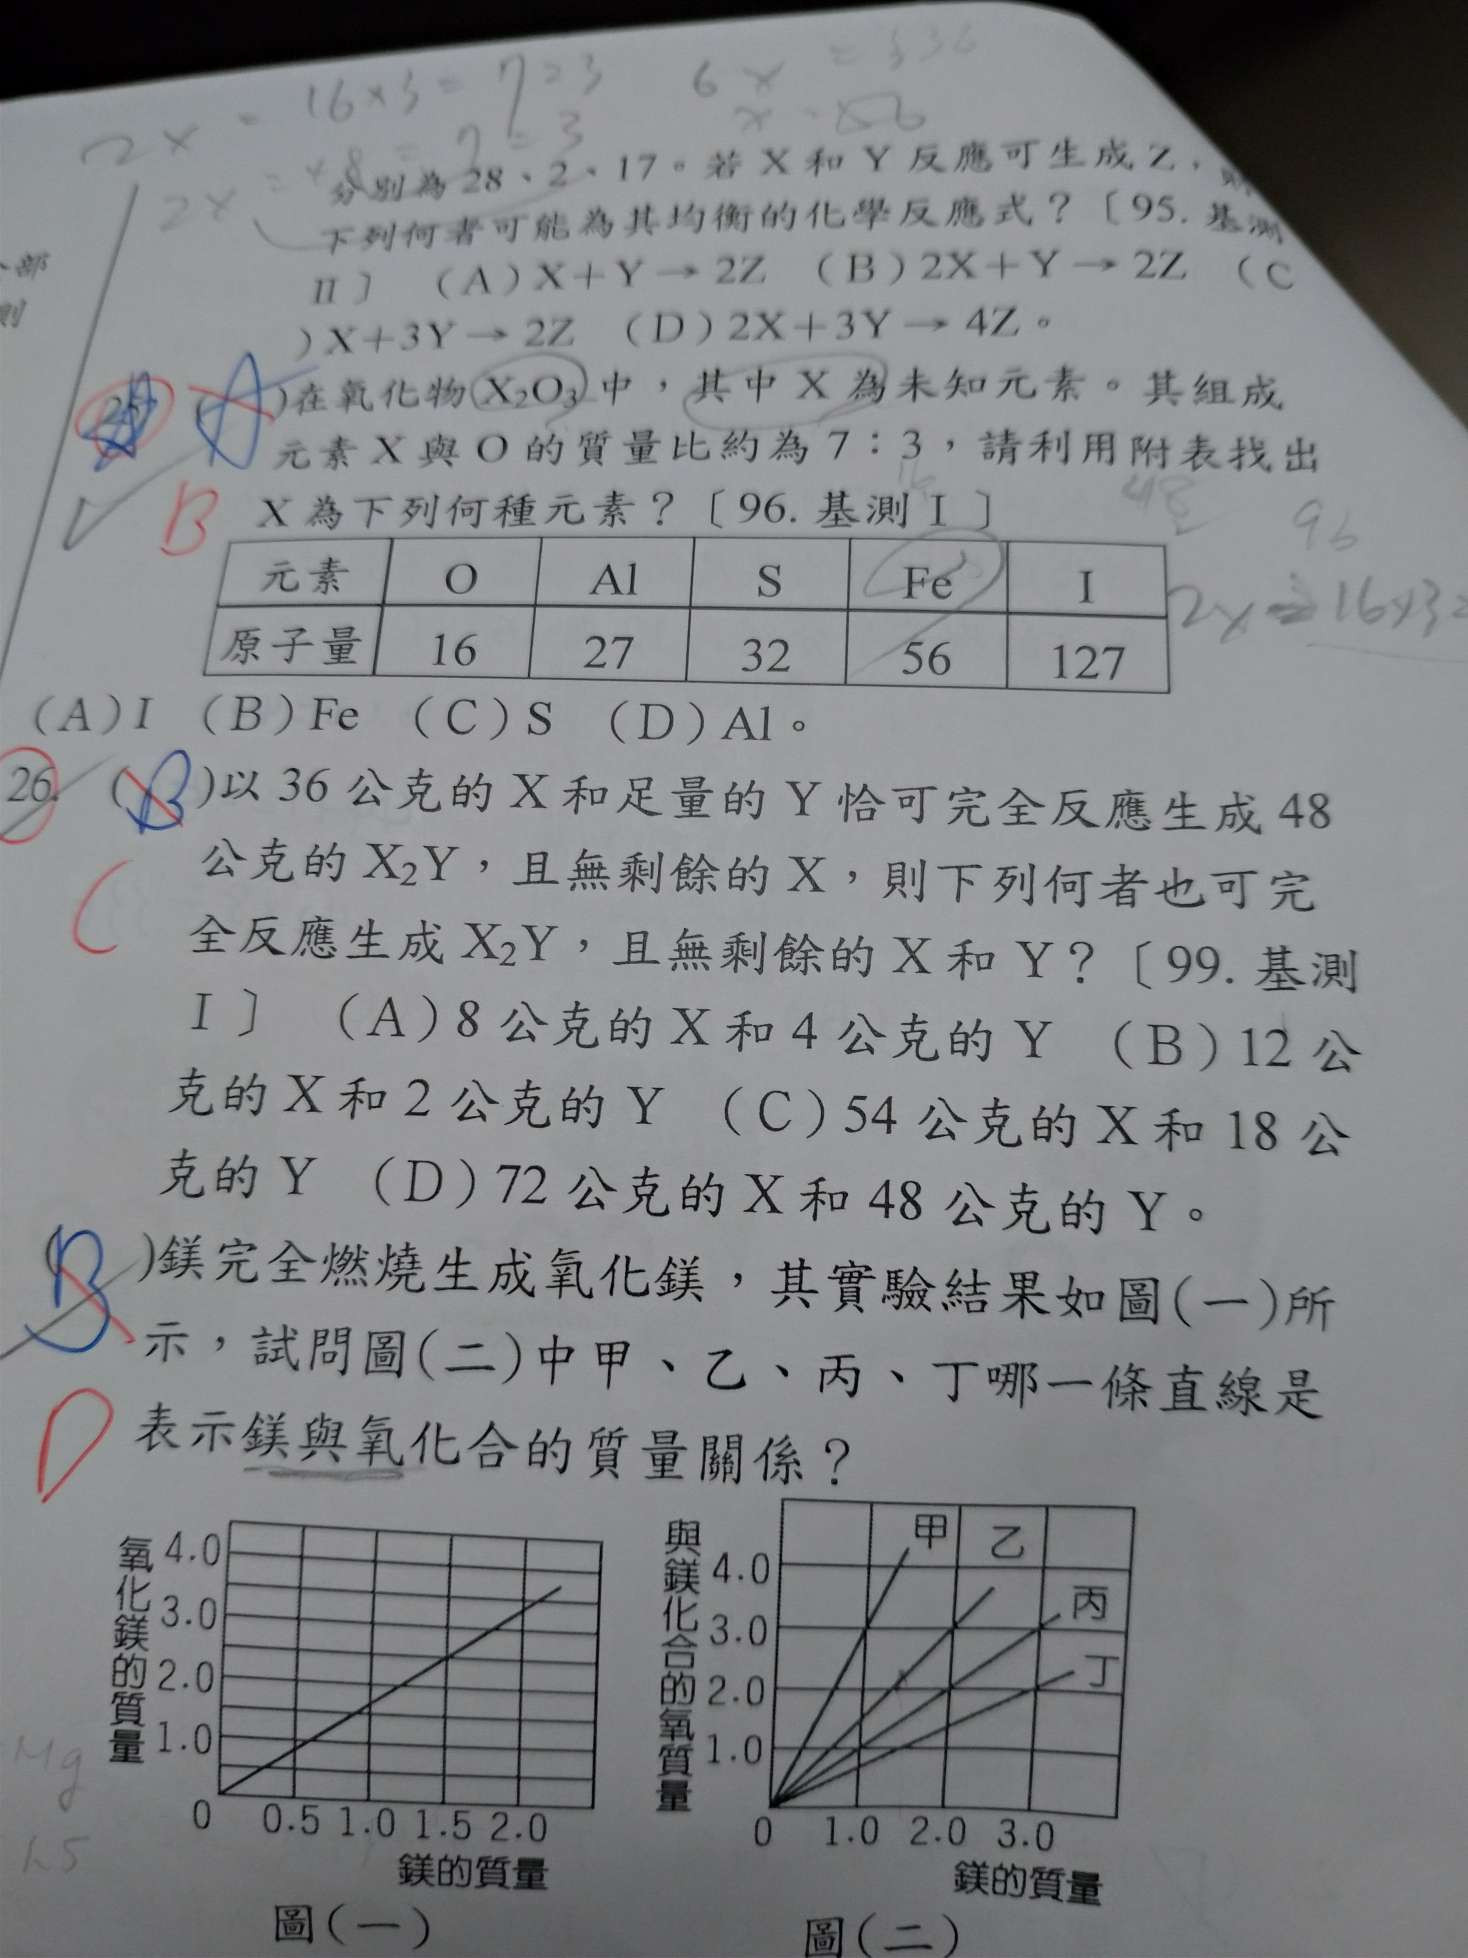 16×3=7=3
6x = 336
2x
x = 56
48 = 7=3
2x =
分別為28、2、17。若 X 和 Y 反應可生成 Z，則
下列何者可能為其均衡的化學反應式？〔95. 基測
部
則
II〕 (A)X＋Y→2Z (B)2X＋Y→2Z (C
)X＋3Y→2Z (D)2X＋3Y→4Z。
)在氧化物 X₂O₃ 中，其中 X 為未知元素。其組成
元素 X 與 O 的質量比約為 7：3，請利用附表找出
B X 為下列何種元素？〔96. 基測 I〕
48 96
元素 O Al S Fe I
2x = 16×3=
原子量 16 27 32 56 127
(A)I (B)Fe (C)S (D)Al。
26. (B)以 36 公克的 X 和足量的 Y 恰可完全反應生成 48
公克的 X₂Y，且無剩餘的 X，則下列何者也可完
C
全反應生成 X₂Y，且無剩餘的 X 和 Y？〔99. 基測
I〕 (A)8 公克的 X 和 4 公克的 Y (B)12 公
克的 X 和 2 公克的 Y (C)54 公克的 X 和 18 公
克的 Y (D)72 公克的 X 和 48 公克的 Y。
(B)鎂完全燃燒生成氧化鎂，其實驗結果如圖(一)所
示，試問圖(二)中甲、乙、丙、丁哪一條直線是
D 表示鎂與氧化合的質量關係？
氧化鎂的質量
4.0
3.0
2.0
1.0
0 0.5 1.0 1.5 2.0
鎂的質量
圖(一)
與鎂化合的氧質量
4.0
3.0
2.0
1.0
甲 乙
丙
丁
0 1.0 2.0 3.0
鎂的質量
圖(二)
Mg
1.5